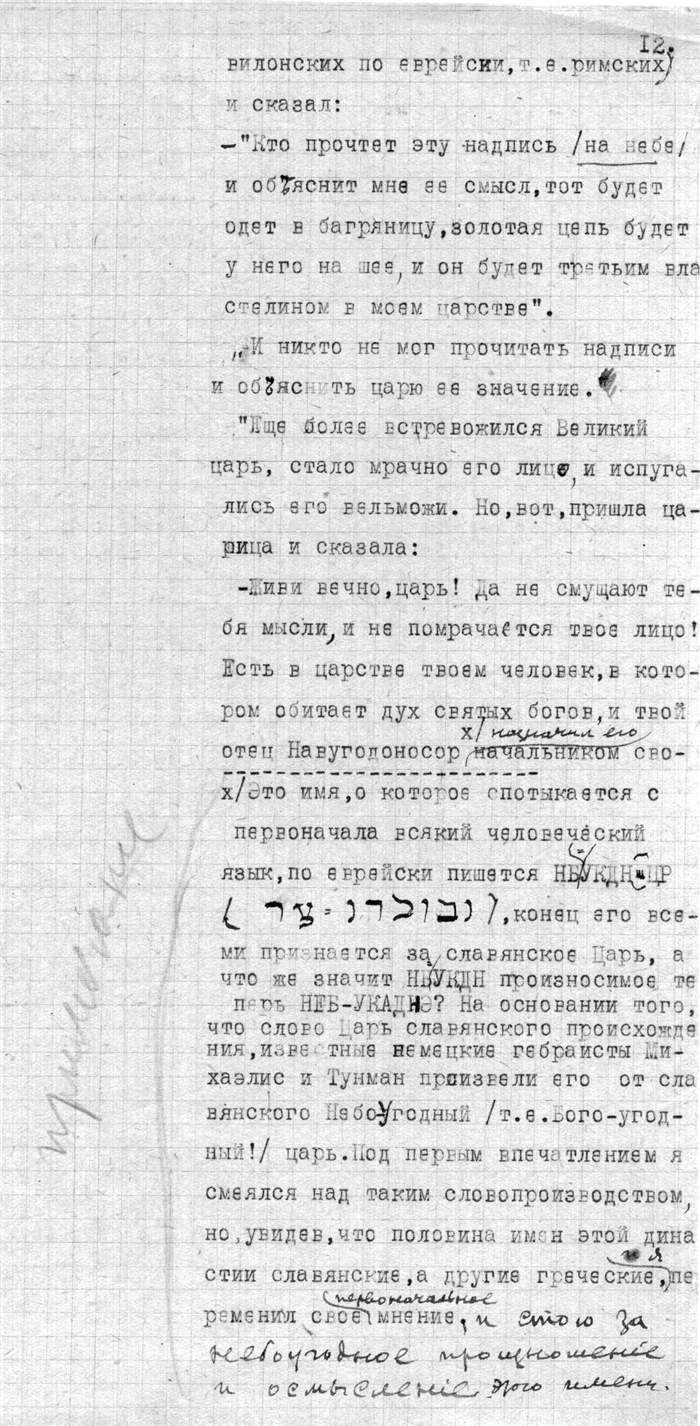 12.
вилонских по еврейски,т.е.римских)
и сказал:
—"Кто прочтет эту надпись /на небе/
и объяснит мне ее смысл,тот будет
одет в багряницу,золотая цепь будет
у него на шее, и он будет третьим вла
стелином в моем царстве".
„И никто не мог прочитать надписи
и объяснить царю ее значение."
"Еще более встревожился Великий
царь, стало мрачно его лицо, и испуга-
лись его вельможи. Но,вот,пришла ца-
рица и сказала:
-Живи вечно,царь! Да не смущают те-
бя мысли, и не помрачается твое лицо!
Есть в царстве твоем человек,в кото-
ром обитает дух святых богов,и твой
х/ назначил его
отец Навугодоносор начальником сво-
х/Это имя,о которое спотыкается с
первоначала всякий человеческий
язык,по еврейски пишется НБУКДН-ЦР
(נבוכדנ-צר),конец его все-
ми признается за славянское Царь, а
что же значит НБУКДН произносимое те
перь НЕБ-УКАДНЭ? На основании того,
что слово Царь славянского происхожде
ния,известные немецкие гебраисты Ми-
хаэлис и Тунман произвели его от сла
вянского Небоугодный /т.е.Бого-угод-
ный!/ царь.Под первым впечатлением я
смеялся над таким словопроизводством,
но,увидев,что половина имен этой дина
стии славянские,а другие греческие, и я пе
ременил свое первоначальное мнение, и стою за
небоугодное произношение
и осмысление этого имени.
примечание